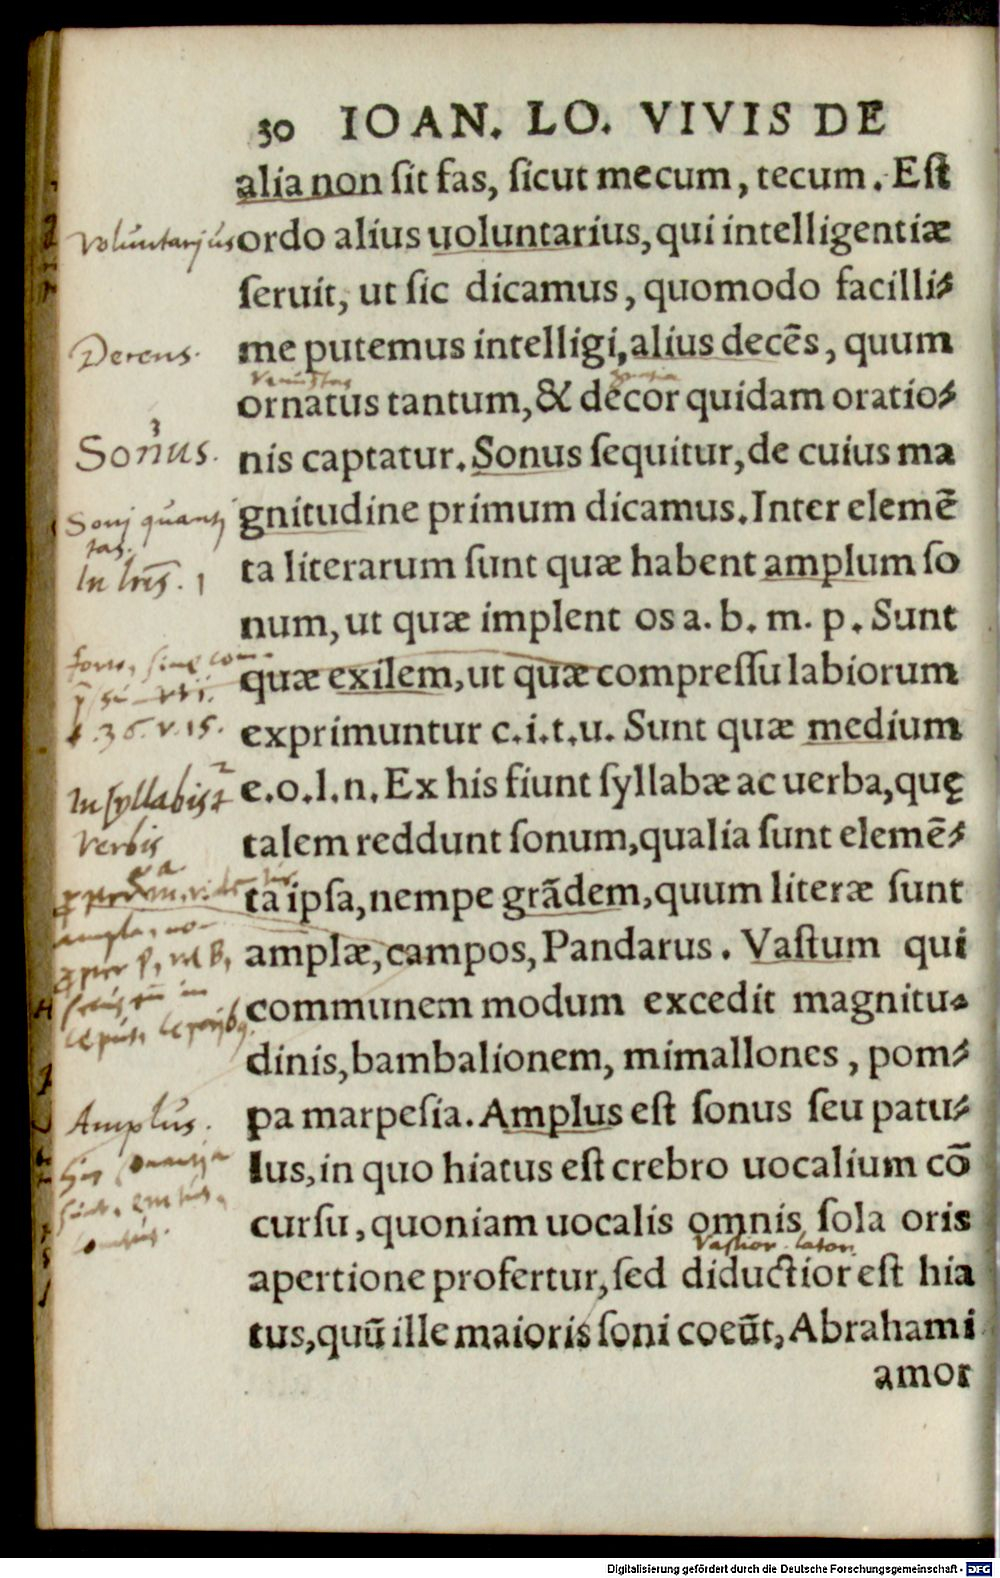 30 IOAN. LO. VIVIS DE
alia non ſit fas, ſicut mecum, tecum. Eſt
Voluntarius
ordo alius uoluntarius, qui intelligentiæ
ſeruit, ut ſic dicamus, quomodo facilli⸗
Decens.
me putemus intelligi, alius decẽs, quum
Venustas gratia
ornatus tantum, & decor quidam oratio⸗
3
Sonus.
nis captatur. Sonus ſequitur, de cuius ma
Soni quanti
gnitudine primum dicamus. Inter elemẽ
tas.
In lris. 1
ta literarum ſunt quæ habent amplum ſo
num, ut quæ implent os a. b. m. p. Sunt
quæ exilem, ut quæ compreſſu labiorum
36. v. 15.
exprimuntur c.i.t.u. Sunt quæ medium
In syllabis & 2
e.o.l.n. Ex his fiunt ſyllabæ ac uerba, quę
Verbis
talem reddunt ſonum, qualia ſunt elemẽ⸗
ta ipſa, nempe grãdem, quum literæ ſunt
amplæ, campos, Pandarus. Vaſtum qui
communem modum excedit magnitu⸗
dinis, bambalionem, mimallones, pom⸗
Amplus.
pa marpeſia. Amplus eſt ſonus ſeu patu⸗
lus, in quo hiatus eſt crebro uocalium cõ
curſu, quoniam uocalis omnis ſola oris
Vastior. lator.
apertione profertur, ſed diductior eſt hia
tus, quũ ille maioris ſoni coeũt, Abrahami
amor
Digitalisierung gefördert durch die Deutsche Forschungsgemeinschaft - DFG